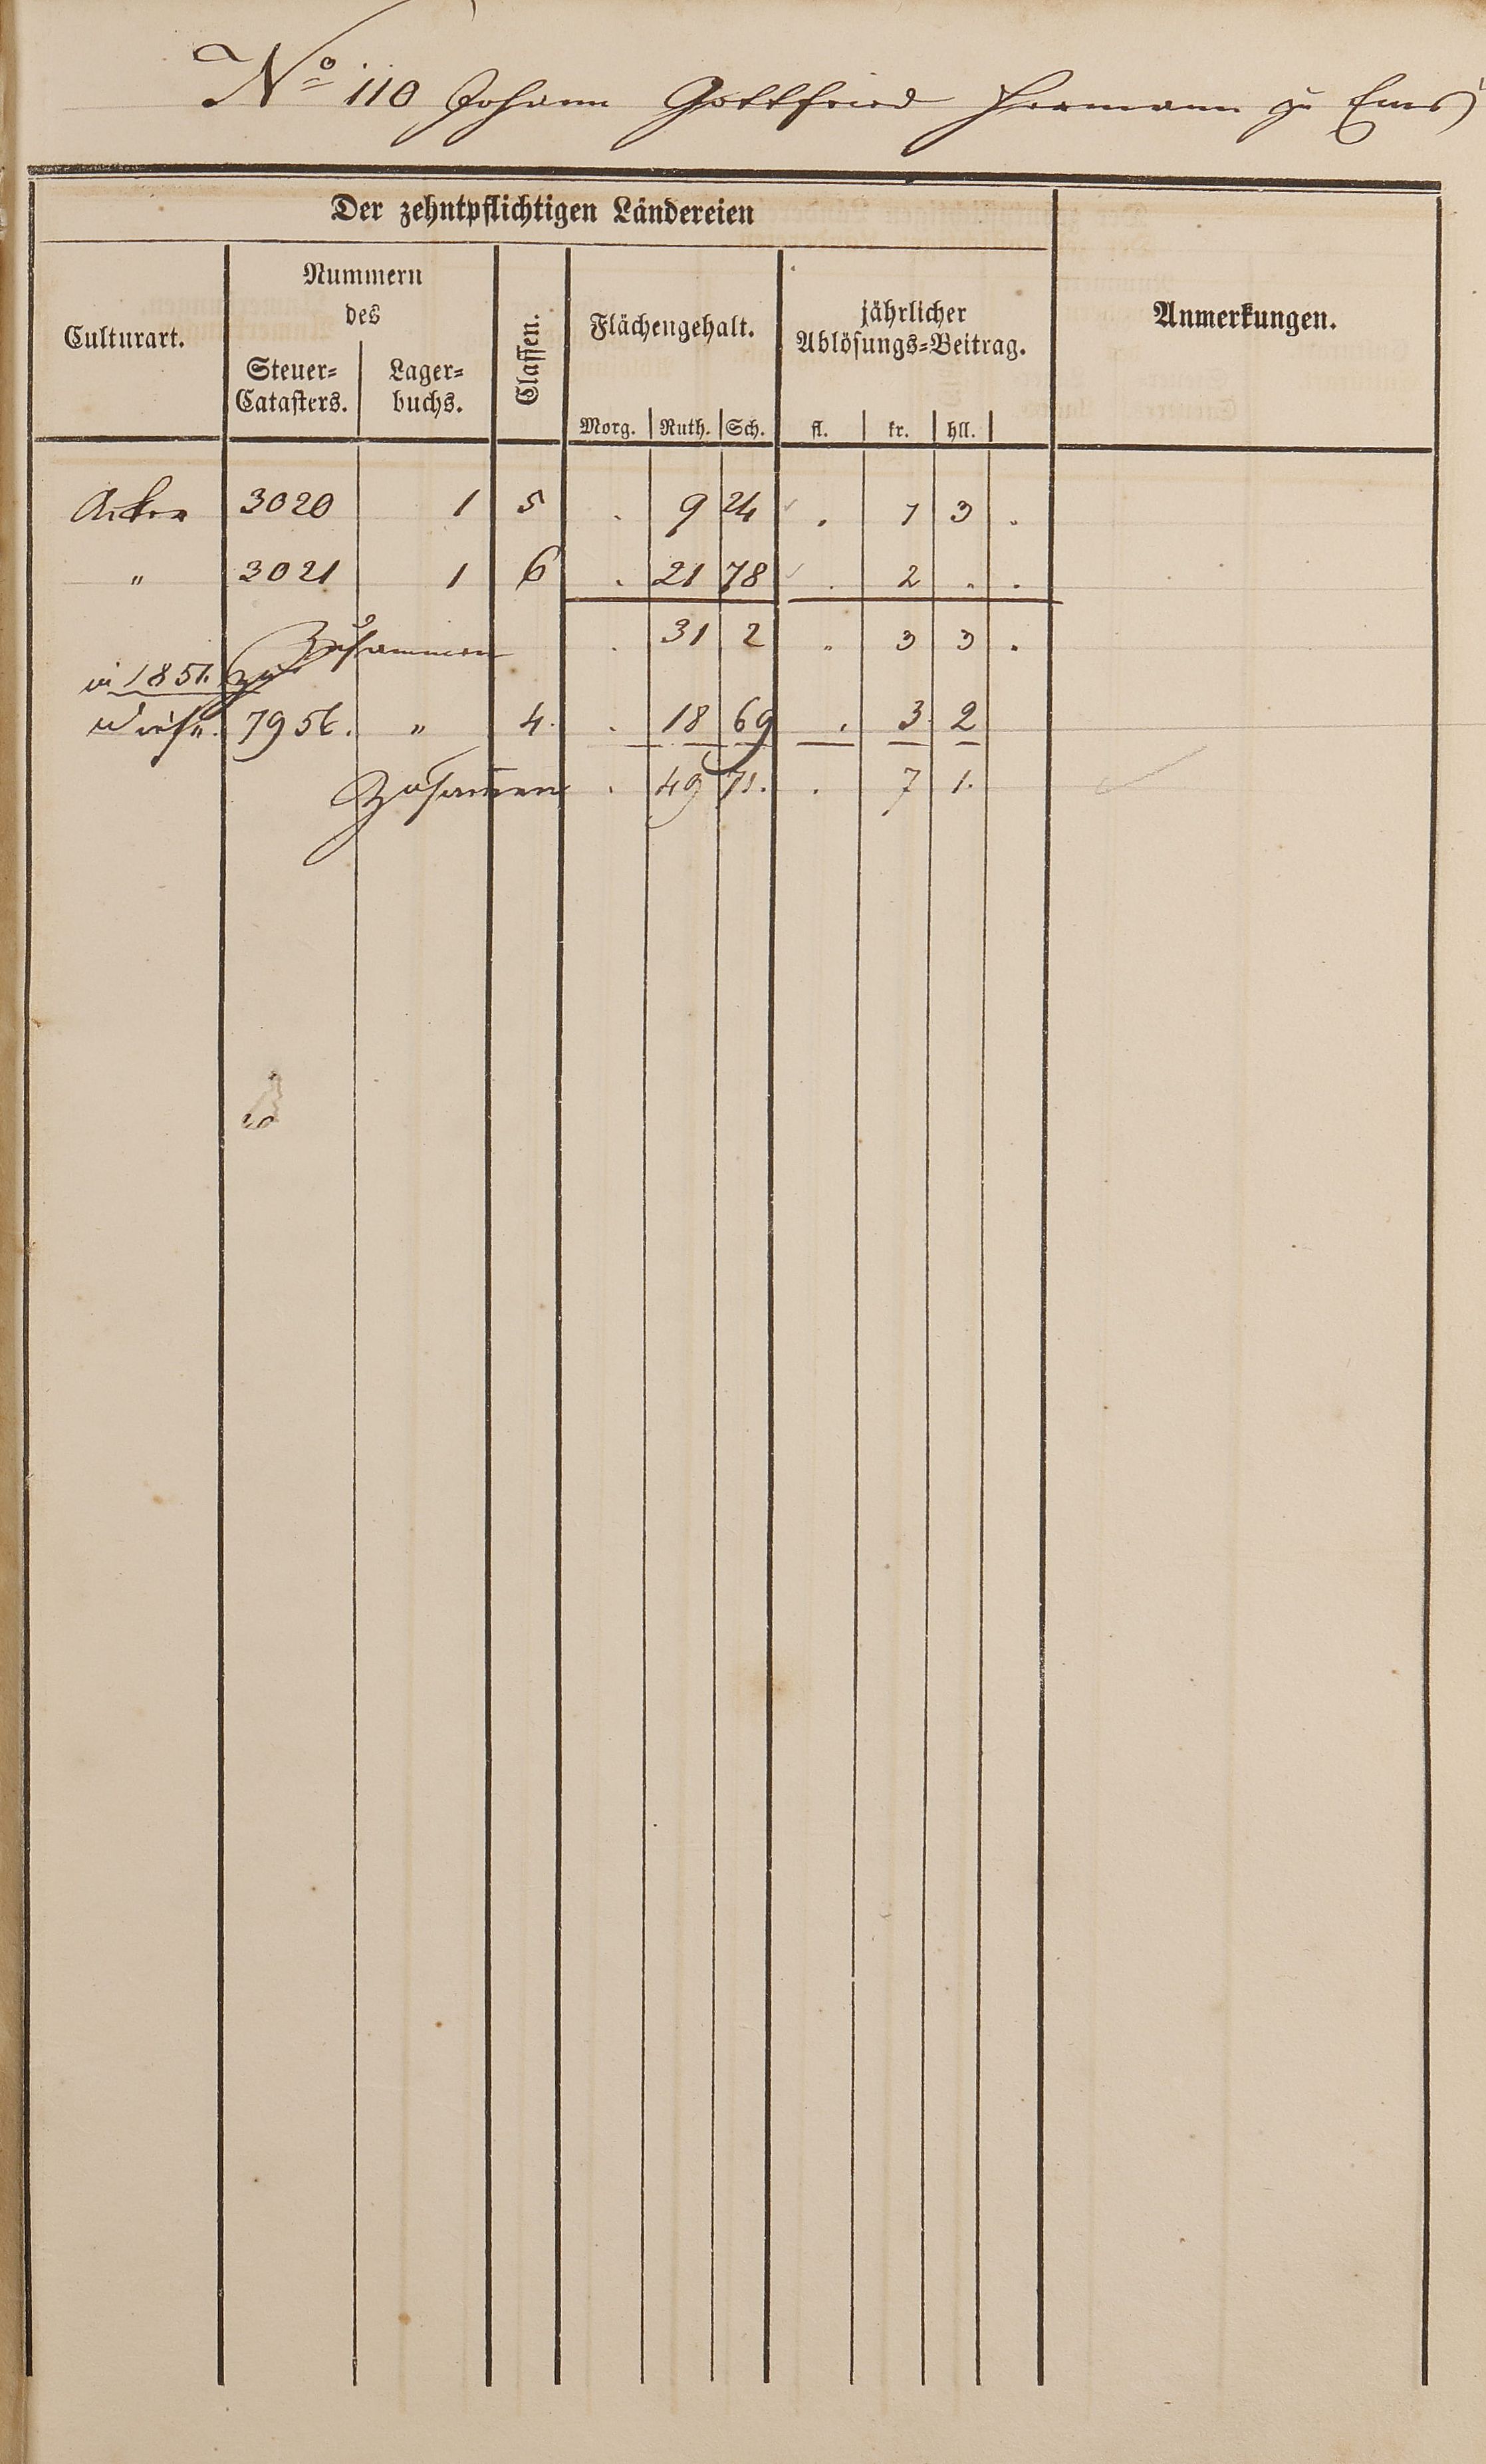 No 110 Johann Gottfried Hermann zu Ems
Der zehntpflichtigen Ländereien
Culturart.
Nummern
des
Steuer=
Catasters.
Lager=
buchs.
Classen.
Flächengehalt.
Morg. Ruth. Sch.
jährlicher
Ablösungs=Beitrag.
fl. kr. hll.
Anmerkungen.
Acker 3020 1 5 . 9 24 . 1 3 .
" 3021 1 6 . 21 78 . 2 . .
Zusammen . 31 2 . 3 3 .
in 1851. zu
Wiese. 7956. " 4. . 18 69 . 3. 2
Zusammen . 49 71. . 7 1.